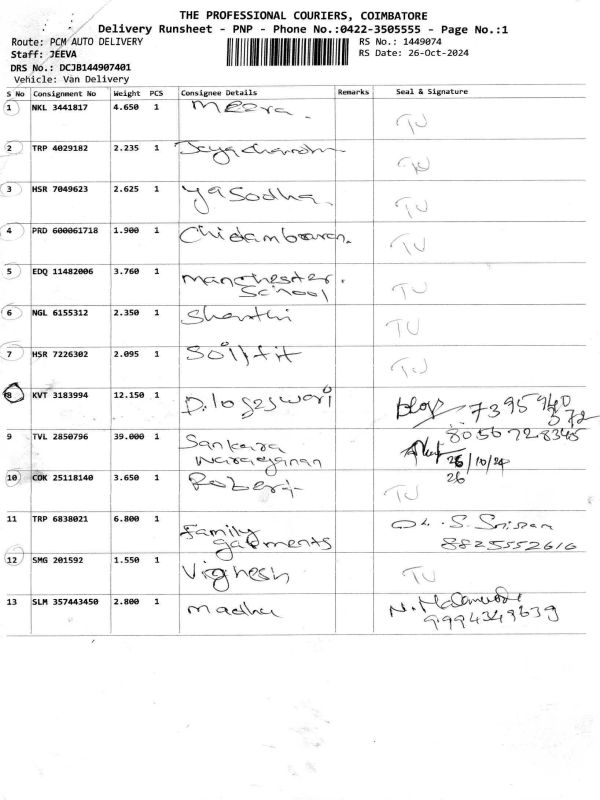 THE PROFESSIONAL COURIERS, COIMBATORE
Delivery Runsheet - PNP - Phone No.:0422-3505555 - Page No.:1
Route: PCM AUTO DELIVERY
RS No.: 1449074
Staff: JEEVA
RS Date: 26-Oct-2024
DRS No.: DCJB144907401
Vehicle: Van Delivery
S No Consignment No Weight PCS Consignee Details Remarks Seal & Signature
1 NKL 3441817 4.650 1 Meera. TU
2 TRP 4029182 2.235 1 TU
3 HSR 7049623 2.625 1 Yasodha. TU
4 PRD 600061718 1.900 1 Chidambaran. TU
5 EDQ 11482006 3.760 1 Manchester. TU
School
6 NGL 6155312 2.350 1 Shanthi TU
7 HSR 7226302 2.095 1 Soilfit TU
8 KVT 3183994 12.150 1 D.logeswari 7395940
572
9 TVL 2850796 39.000 1 Sankara 8056728345
Narayanan 26/10/24
26
10 COK 25118140 3.650 1 Robert TU
11 TRP 6838021 6.800 1 Family S.
garments 8825552616
12 SMG 201592 1.550 1 Vighesh TU
13 SLM 357443450 2.800 1 madhu N.
9994349639